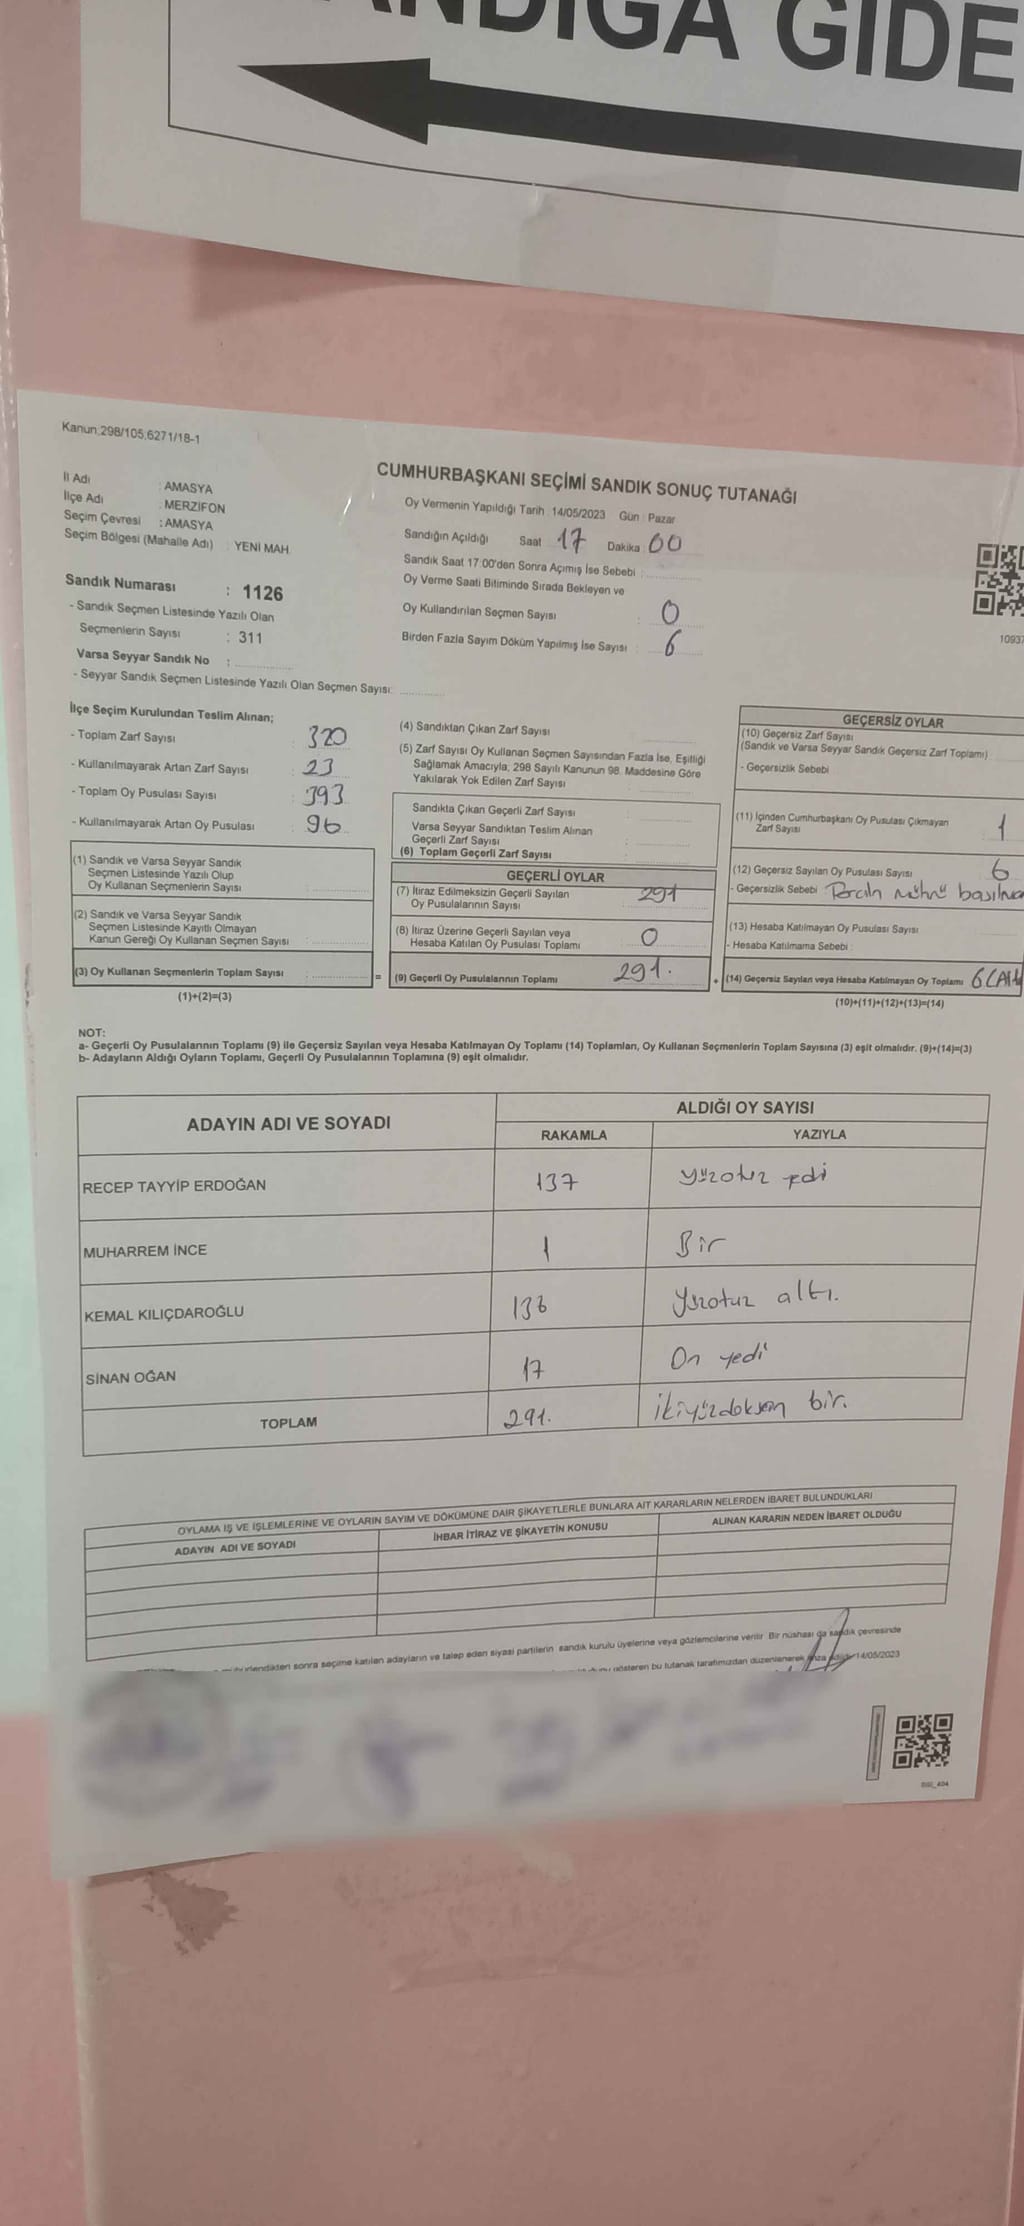 NDIĞA GİDE
Kanun;298/105;6271/18-1
CUMHURBAŞKANI SEÇİMİ SANDIK SONUÇ TUTANAĞI
İl Adı : AMASYA
İlçe Adı : MERZİFON
Seçim Çevresi : AMASYA
Seçim Bölgesi (Mahalle Adı) : YENİ MAH.
Oy Vermenin Yapıldığı Tarih : 14/05/2023 Gün : Pazar
Sandığın Açıldığı Saat 17 Dakika 00
Sandık Saat 17:00'den Sonra Açımış İse Sebebi :
Oy Verme Saati Bitiminde Sırada Bekleyen ve
Oy Kullandırılan Seçmen Sayısı : 0
Birden Fazla Sayım Döküm Yapılmış İse Sayısı : 6
Sandık Numarası : 1126
- Sandık Seçmen Listesinde Yazılı Olan
Seçmenlerin Sayısı : 311
Varsa Seyyar Sandık No :
- Seyyar Sandık Seçmen Listesinde Yazılı Olan Seçmen Sayısı:
1093
İlçe Seçim Kurulundan Teslim Alınan;
- Toplam Zarf Sayısı : 320
- Kullanılmayarak Artan Zarf Sayısı : 23
- Toplam Oy Pusulası Sayısı : 393
- Kullanılmayarak Artan Oy Pusulası : 96
(1) Sandık ve Varsa Seyyar Sandık
Seçmen Listesinde Yazılı Olup
Oy Kullanan Seçmenlerin Sayısı :
(2) Sandık ve Varsa Seyyar Sandık
Seçmen Listesinde Kayıtlı Olmayan
Kanun Gereği Oy Kullanan Seçmen Sayısı :
(3) Oy Kullanan Seçmenlerin Toplam Sayısı : =
(1)+(2)=(3)
(4) Sandıktan Çıkan Zarf Sayısı
(5) Zarf Sayısı Oy Kullanan Seçmen Sayısından Fazla İse, Eşitliği
Sağlamak Amacıyla, 298 Sayılı Kanunun 98. Maddesine Göre
Yakılarak Yok Edilen Zarf Sayısı :
Sandıkta Çıkan Geçerli Zarf Sayısı :
Varsa Seyyar Sandıktan Teslim Alınan
Geçerli Zarf Sayısı :
(6) Toplam Geçerli Zarf Sayısı :
GEÇERLİ OYLAR
(7) İtiraz Edilmeksizin Geçerli Sayılan
Oy Pusulalarının Sayısı 291
(8) İtiraz Üzerine Geçerli Sayılan veya
Hesaba Katılan Oy Pusulası Toplamı 0
(9) Geçerli Oy Pusulalarının Toplamı 291. +
GEÇERSİZ OYLAR
(10) Geçersiz Zarf Sayısı
(Sandık ve Varsa Seyyar Sandık Geçersiz Zarf Toplamı)
- Geçersizlik Sebebi
(11) İçinden Cumhurbaşkanı Oy Pusulası Çıkmayan
Zarf Sayısı 1
(12) Geçersiz Sayılan Oy Pusulası Sayısı 6
- Geçersizlik Sebebi Tercih mührü
(13) Hesaba Katılmayan Oy Pusulası Sayısı
- Hesaba Katılmama Sebebi :
(14) Geçersiz Sayılan veya Hesaba Katılmayan Oy Toplamı 6
(10)+(11)+(12)+(13)=(14)
NOT:
a- Geçerli Oy Pusulalarının Toplamı (9) ile Geçersiz Sayılan veya Hesaba Katılmayan Oy Toplamı (14) Toplamları, Oy Kullanan Seçmenlerin Toplam Sayısına (3) eşit olmalıdır. (9)+(14)=(3)
b- Adayların Aldığı Oyların Toplamı, Geçerli Oy Pusulalarının Toplamına (9) eşit olmalıdır.
ADAYIN ADI VE SOYADI
ALDIĞI OY SAYISI
RAKAMLA YAZIYLA
RECEP TAYYİP ERDOĞAN 137 yüzotuz yedi
MUHARREM İNCE 1 Bir
KEMAL KILIÇDAROĞLU 136 Yüzotuz altı.
SİNAN OĞAN 17 On yedi
TOPLAM 291. ikiyüzdoksan bir.
OYLAMA İŞ VE İŞLEMLERİNE VE OYLARIN SAYIM VE DÖKÜMÜNE DAİR ŞİKAYETLERLE BUNLARA AİT KARARLARIN NELERDEN İBARET BULUNDUKLARI
ADAYIN ADI VE SOYADI İHBAR İTİRAZ VE ŞİKAYETİN KONUSU ALINAN KARARIN NEDEN İBARET OLDUĞU
sonra seçime katılan adayların ve talep eden siyasi partilerin sandık kurulu üyelerine veya gözlemcilerine verilir. Bir nüshası da sandık çevresinde
gösteren bu tutanak tarafımızdan düzenlenerek imza edildi. 14/05/2023